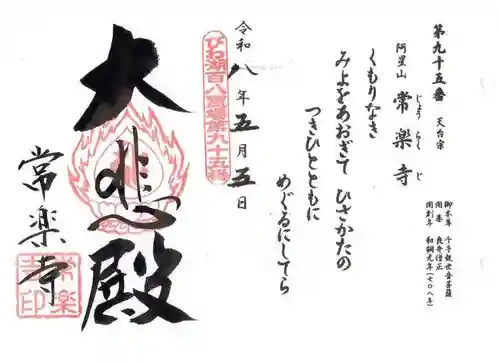 第九十五番 天台宗
阿星山 常楽寺
じょう らく じ
御本尊 千手観世音菩薩
開基 良弁僧正
開創年 和銅元年(七〇八年)
くもりなき
みよをあおぎて ひさかたの
つきひとともに
めぐるにしてら
令和八年五月五日
びわ湖百八霊場第九十五番
大悲殿
常楽寺
常楽寺印